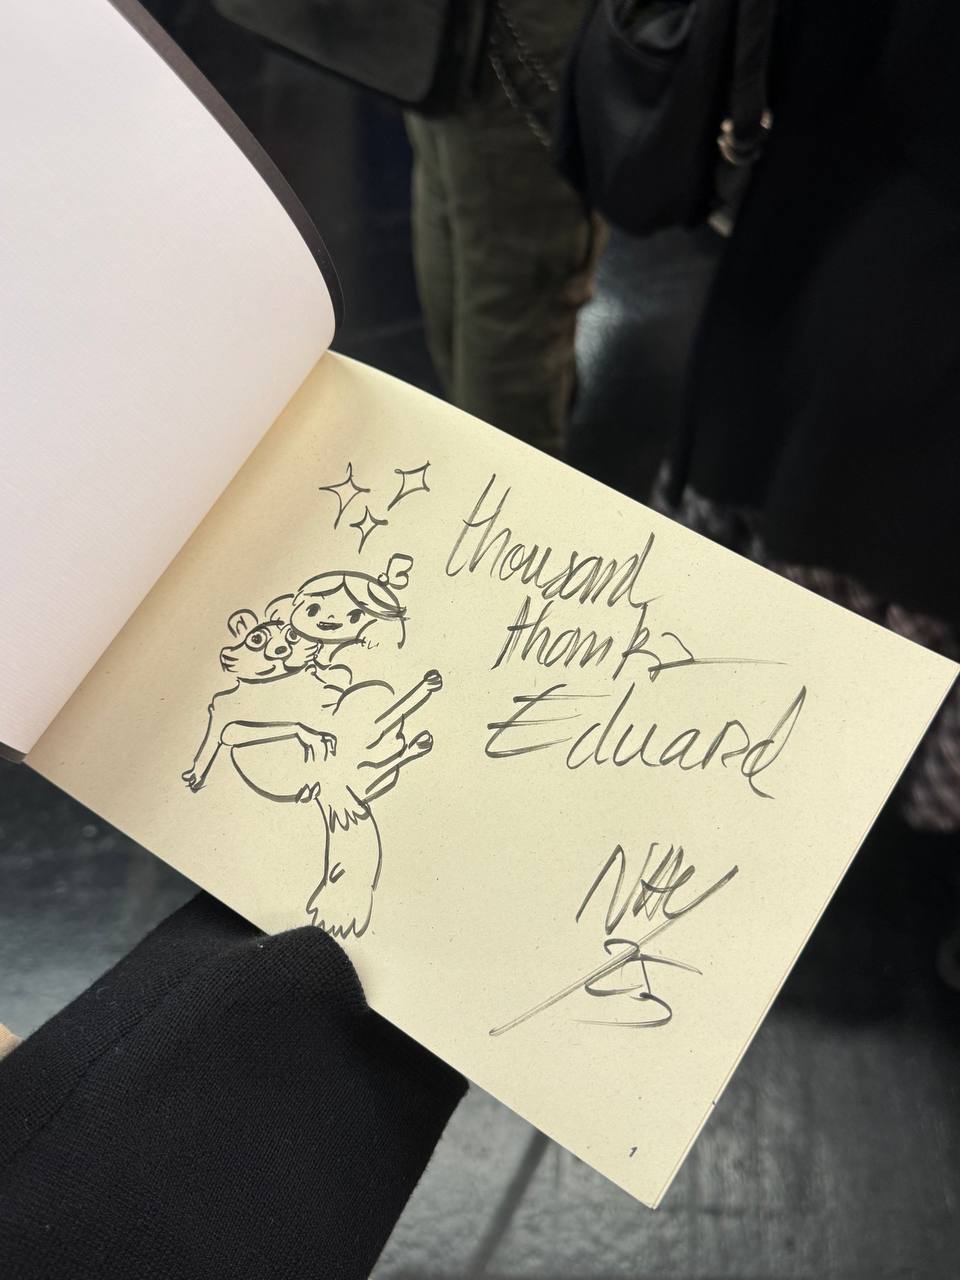 thousand
thanks
Eduard
25
1